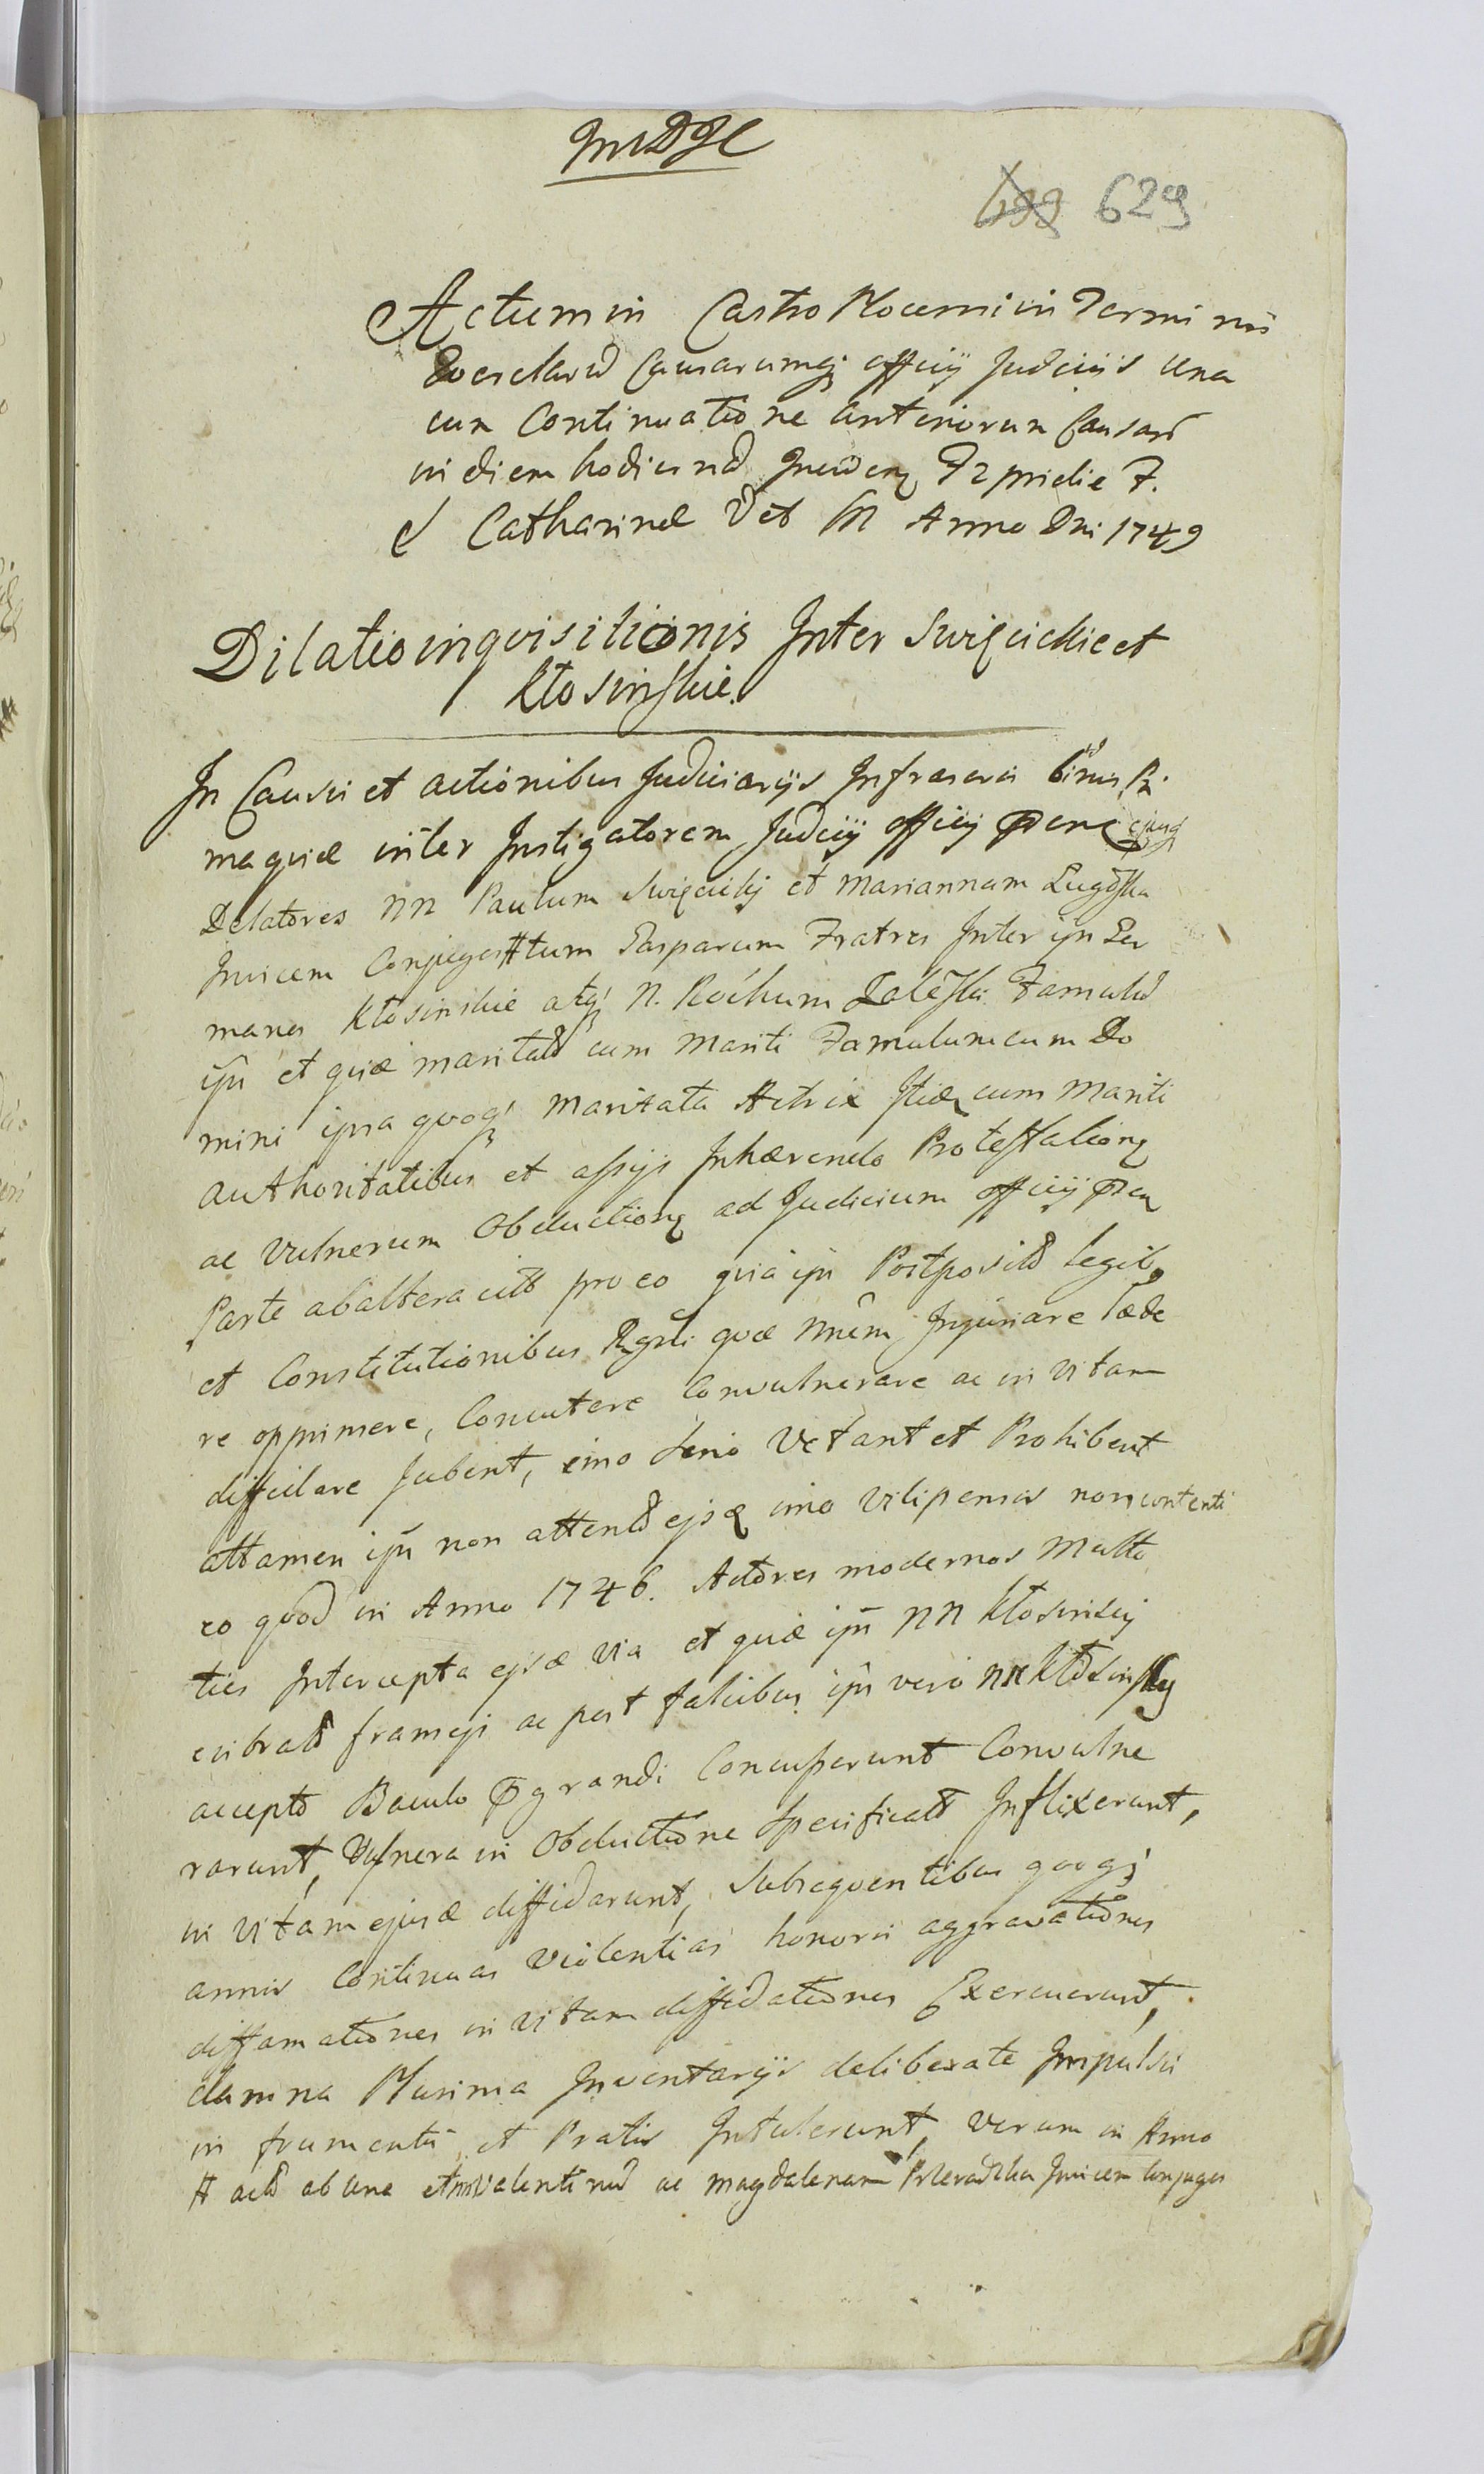 629
Actum in Castro Plocensi in Termi nis
Querelarū Causarumq; officij Judicijs una
cum Continuatione anteriorum Causarū
in diem hodiernā pridie F.
S Catharinæ V et M Anno Dni 1749
Dilatio inquisitionis Inter Swięcickie et
Kłosinskie.
In Causis et actionibus Judiciarijs Infrascri binis Pri
maquæ inter Instigatorem Judicij officij
Delatores NN Paulum Swięcickij et Mariannam
Invicem Conjuges # tum Casparum Fratres Inter
manos Kłosinskie atq; N. Rochum Zaleski Famulū
ipsū et quæ maritalē cum Mariti Famulum cum Do
mini ipsa quoq; Maritata Actrix cum Mariti
authoritatibus et assijs Inhærendo Protestationę
ac Vulnerum Obductionę ad Judicium officij
Parte ab altera citō pro eo quia ipsi Postpositō legibꝫ
et Constitutionibus Regni quæ Injuriare læde
re opprimere, Concutere Convulnerare ac in vitam
diffidare Jubent, imo serio Vetant et Prohibent
attamen ipsi non attentō ejsæ imo vilipensis non contenti
eo quod in Anno 1746. Actores modernos Multo
ties Intercepta ejsæ via et quiæ ipsū NN Kłosinscij
framejs ac post falcibus ipsi vero NN Kłosinskij
accepto Baculo grandi Concusserunt Convulne
rarunt, Vulnera in Obductione Specificata Inflixerunt,
in vitam ejusæ diffidarunt, Subsequentibus quoq;
annis Continuas violentias honoris aggravationes
diffamationes in vitam diffidationes Exercuerunt,
damna Plurima Inventarijs deliberate Impulsis
in frumentis et Pratis Intulerunt, verum in Anno
# actō ab una et Valentinū ac Magdalenam Invicem Conjuges